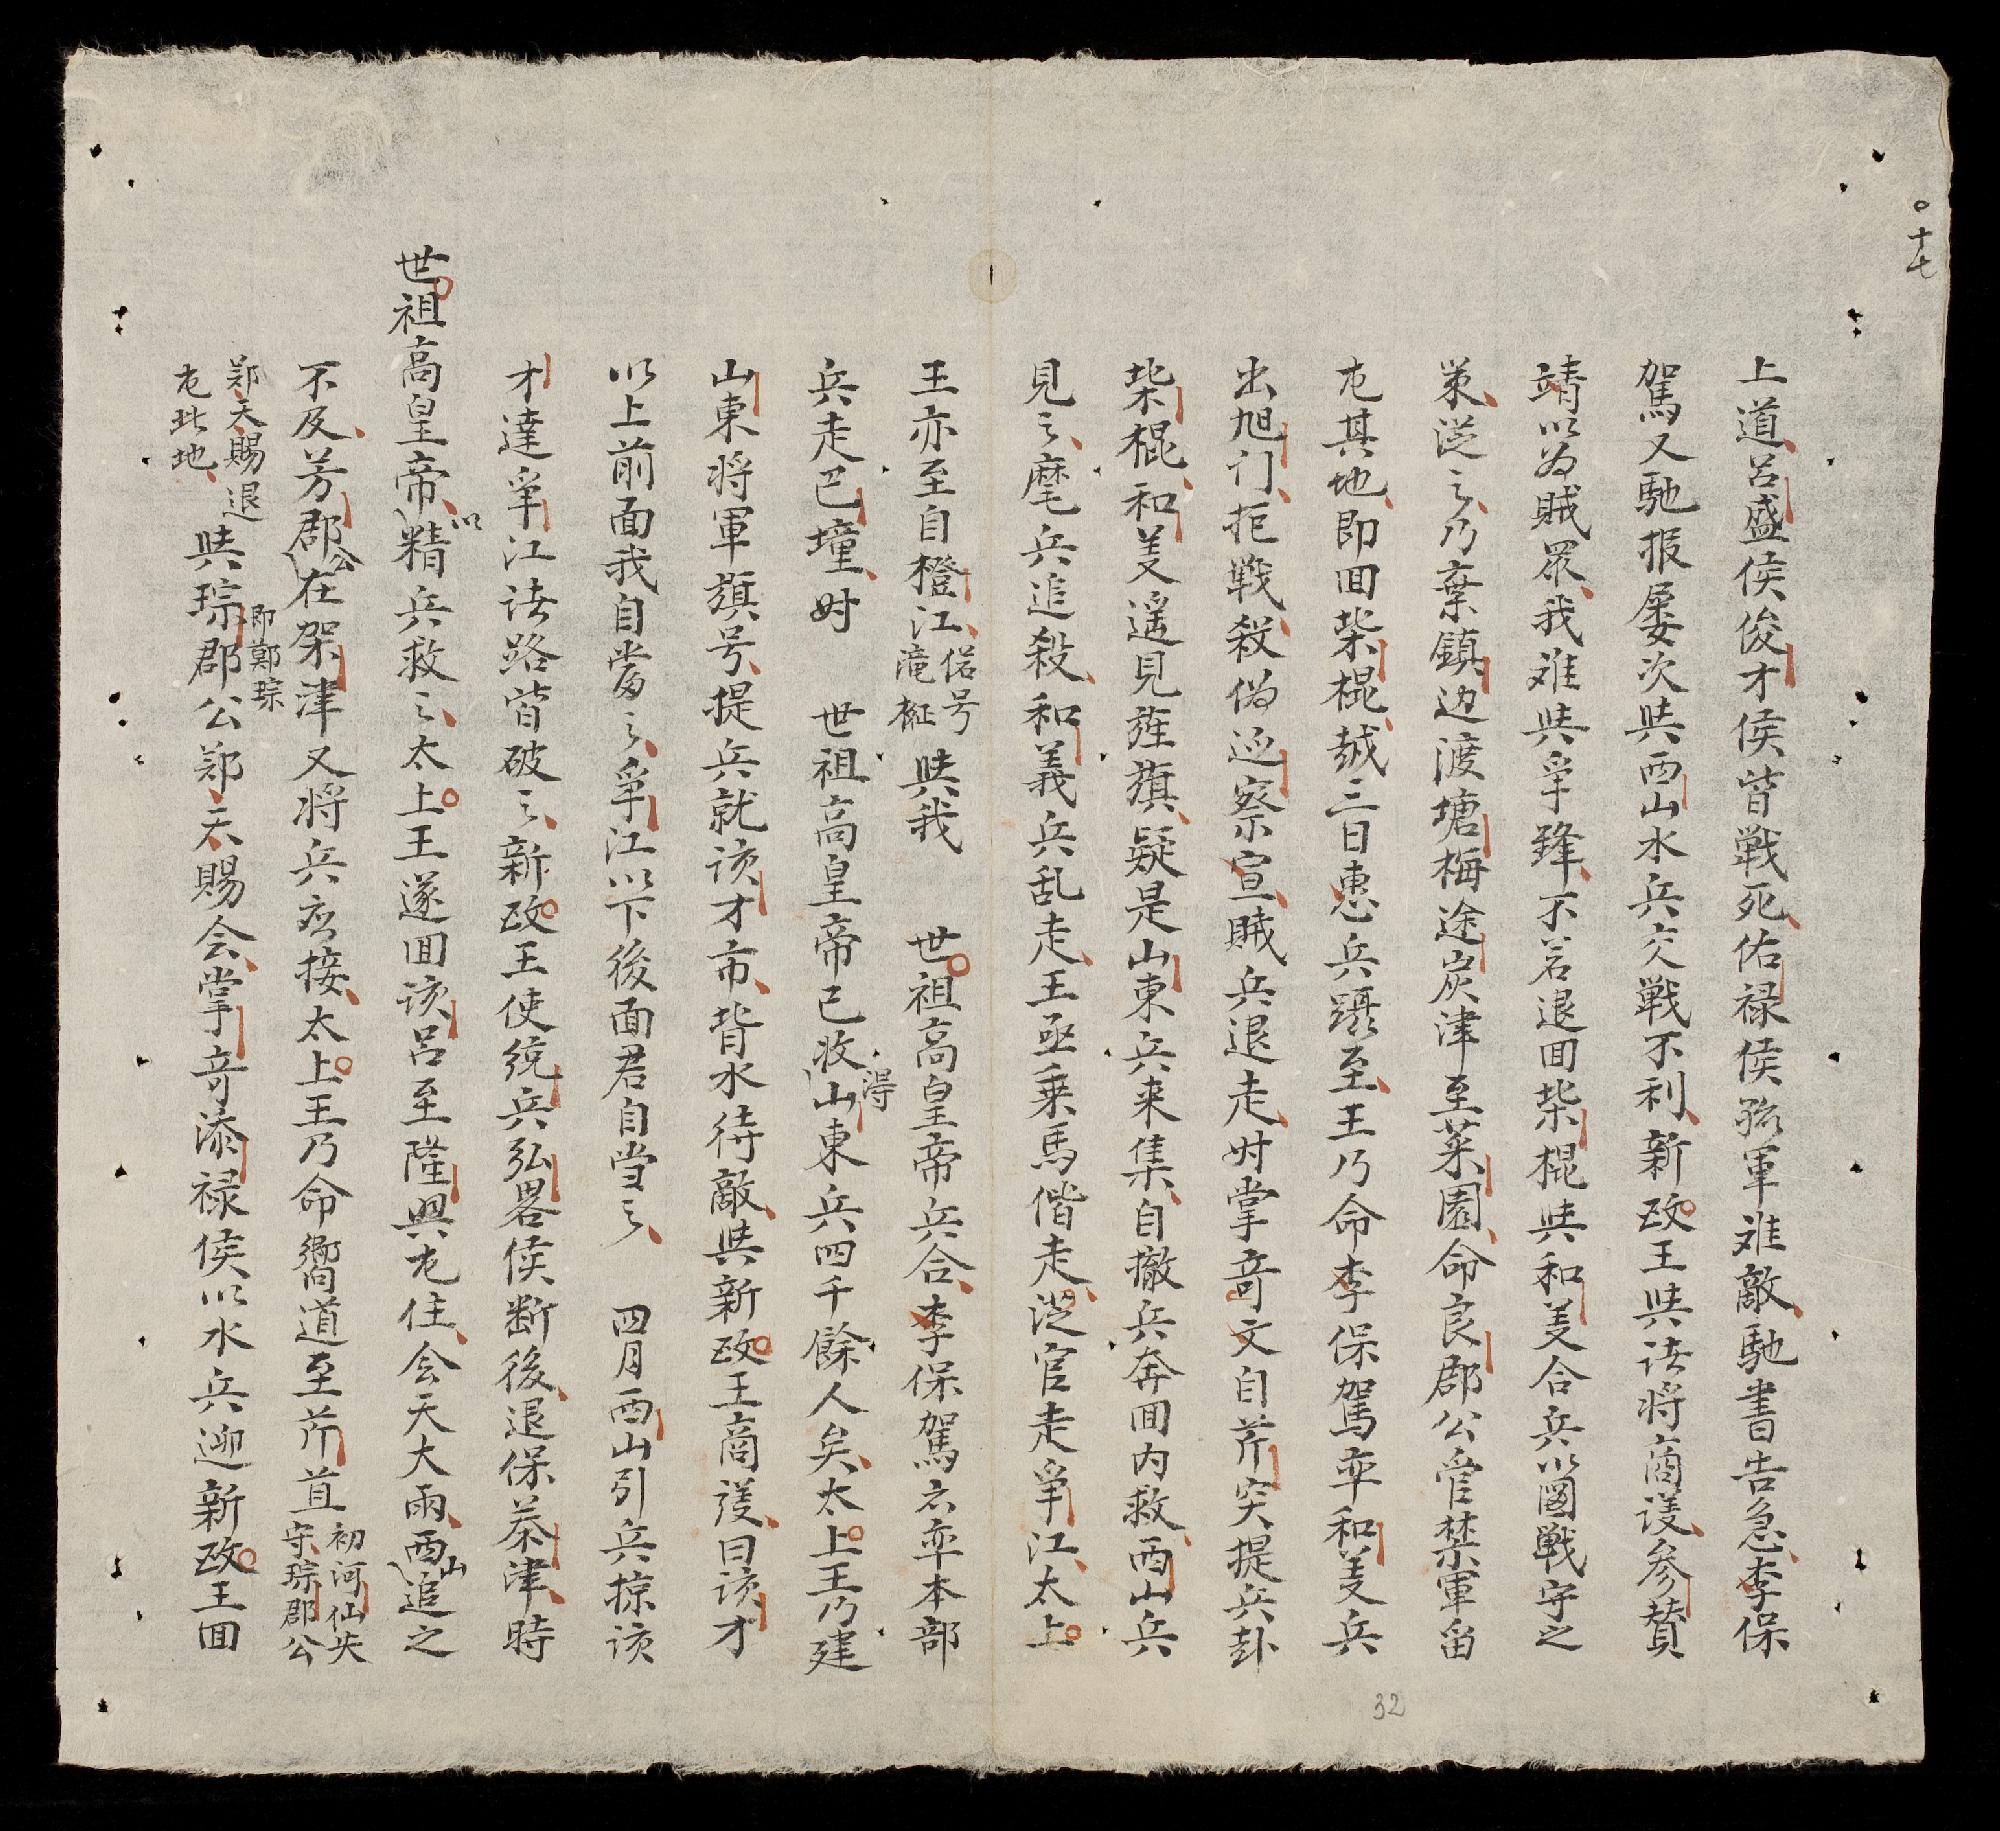 十七
上道呂盛侯俊才侯皆戰死佑禄侯孤軍难敵馳書告急李保
駕又馳报屡次㠯西山水兵交戰不利新政王㠯诸将商議参賛
靖以為賊眾我难㠯争鋒不若退回柴棍㠯和美合兵以圖戰守之
策従之乃棄鎮边渡塘梅途炭津至菜園命良郡公管禁軍留
屯其地即回柴棍越三日惠兵躡至王乃命李保駕率和美兵
出旭门拒戰殺偽巡察宣賊兵退走时掌奇文自芹突提兵卦
柴棍和美遥見旌旗疑是山東兵来集自撤兵奔回内救西山兵
見之麾兵追殺和義兵乱走王亟乗馬偕走従官走争江太上
王亦至自橙江俗号滝𣔻㠯我 世祖高皇帝兵合李保駕亦率本部
兵走巴墥时 世祖高皇帝已收得山東兵四千餘人矣太上王乃建
山東将軍旗号提兵就该才市背水待敵㠯新政王商議曰该才
以上前面我自當之争江以下後面君自当之 四月西山引兵掠该
才達争江诸路皆破之新政王使統兵弘畧侯断後退保茶津時
世祖高皇帝以精兵救之太上王遂回该呂至隆興屯住会天大雨西山追之
不及芳郡公在架津又将兵应接太上王乃命嚮道至芹苴初河仙失守琮郡公
郑天賜退屯北地㠯琮郡公即鄭琮郑天賜会掌奇添禄侯以水兵迎新政王回
32